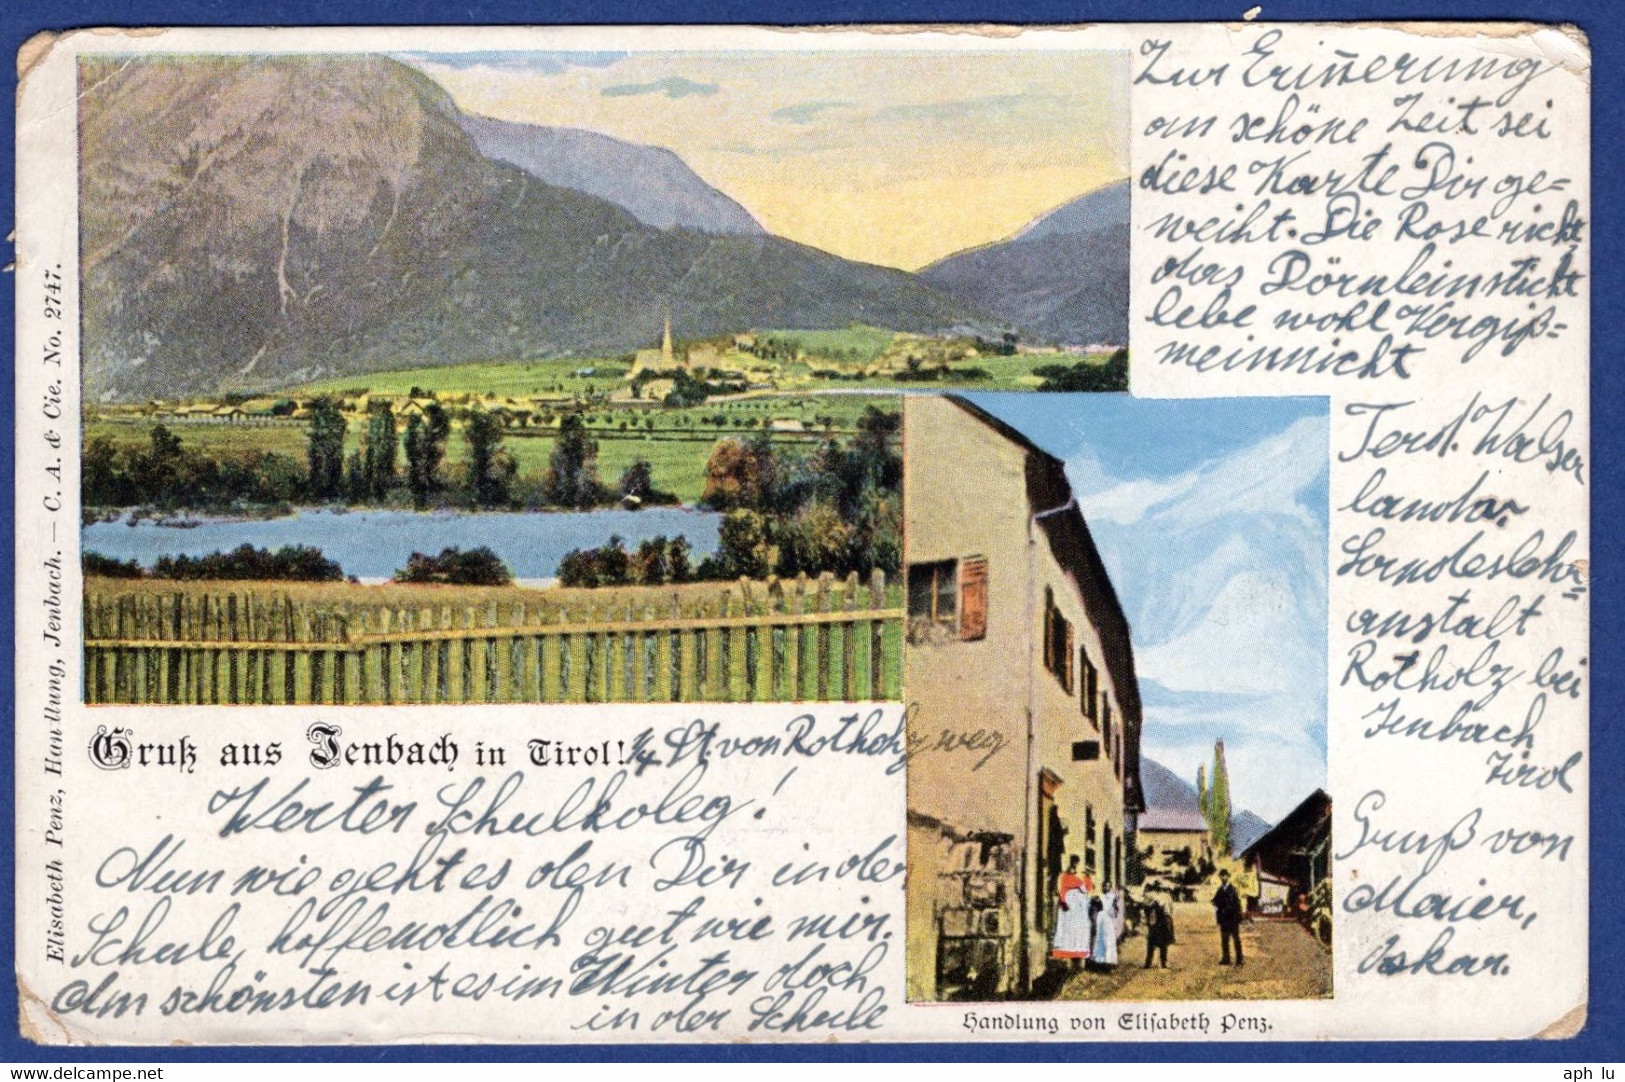 Zur Erinnerung
an schöne Zeit sei
diese Karte Dir ge=
weiht. Die Rose nicht,
das Dörnlein sticht
lebe wohl Vergiß=
meinnicht
Ferd. Walser
landw.
Landeslehr=
anstalt
Rotholz bei
Jenbach
Tirol
Gruß von
Maier,
Oskar.
Gruß aus Jenbach in Tirol! ¼ St. von Rotholz weg
Werter Schulkoleg!
Nun wie geht es den Dir in der
Schule, hoffendtlich gut wie mir.
Am schönsten ist es im Winter doch
in der Schule
Handlung von Elisabeth Penz.
Elisabeth Penz, Handlung, Jenbach. — C. A. & Cie. No. 2747.
aph lu